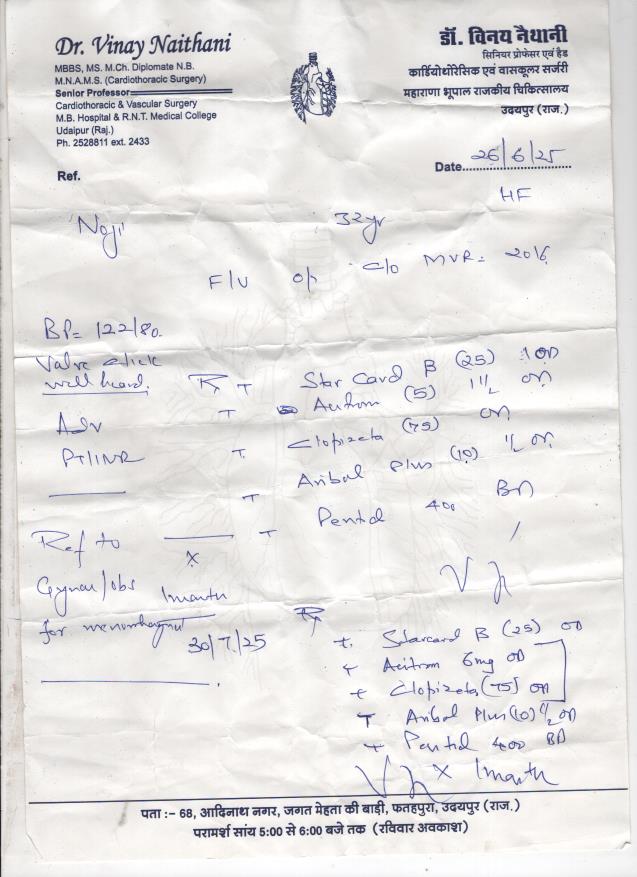 Dr. Vinay Naithani
MBBS, MS. M.Ch. Diplomate N.B.
M.N.A.M.S. (Cardiothoracic Surgery)
Senior Professor
Cardiothoracic & Vascular Surgery
M.B. Hospital & R.N.T. Medical College
Udaipur (Raj.)
Ph. 2528811 ext. 2433
Ref.
डॉ. विनय नैथानी
सिनियर प्रोफेसर एवं हैड
कार्डियोथोरेसिक एवं वासकूलर सर्जरी
महाराणा भूपाल राजकीय चिकित्सालय
उदयपुर (राज.)
Date 26/6/25
HF
32yr
F/U o/ c/o MVR = 2016
BP = 122/80
Valve click
well heard.
Adv
PT/INR
Ref to
Gynae/Obs
for menorrhagia
Rx T Star Card B (25) 1 OD
T (5) 1 1/2 OD
T Clopizeta (75) OD
T Plus (10) 1/2 OD
T 400 BD
x 1 month
30/7/25
Rx
T. Starcard B (25) OD
T Acitrom 6mg OD
T Clopizeta (75) OD
T Plus (10) 1/2 OD
T 400 BD
x 1 month
पता :- 68, आदिनाथ नगर, जगत मेहता की बाड़ी, फतहपुरा, उदयपुर (राज.)
परामर्श सांय 5:00 से 6:00 बजे तक (रविवार अवकाश)